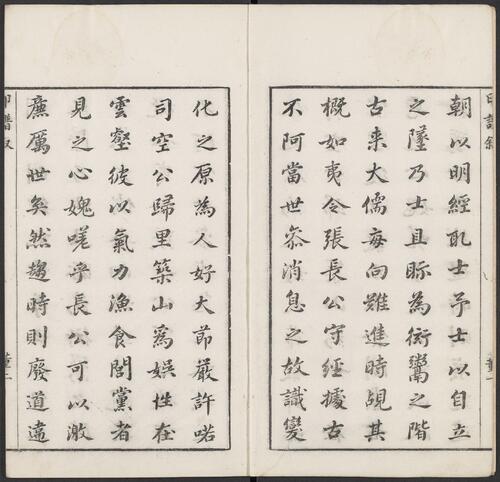 印譜叙
朝以明經取士予士以自立
之墜乃士且眎為衒鬻之階
古来大儒每向難進時覘其
概如夷令張長公守經據古
不阿當世叅消息之故識變
化之原為人好大莭嚴許喏
司空公歸里築山為娛性在
雲壑彼以氣力漁食閭黨者
見之心媿嗟乎長公可以激
廉厲世矣然趨時則廢道違
印譜叙
董二